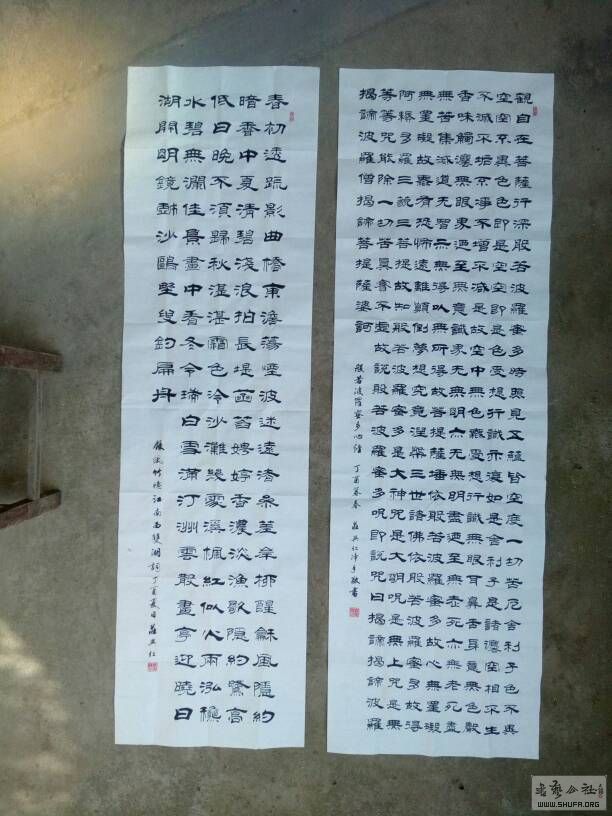 觀自在菩薩行深般若波羅蜜多時照見五蘊皆空度一切苦厄舍利子色不異
空空不異色色即是空空即是色受想行識亦復如是舍利子是諸法空相不生
不滅不垢不淨不增不減是故空中無色無受想行識無眼耳鼻舌身意無色聲
香味觸灋無眼界迺至無意識界無無明亦無無明盡迺至無老死亦無老死盡
無苦集滅道無智亦無得以無所得故菩提薩埵依般若波羅蜜多故心無罣礙
無罣礙故無有恐怖遠離顛倒夢想究竟涅槃三世諸佛依般若波羅蜜多故得
阿耨多羅三藐三菩提故知般若波羅蜜多是大神咒是大明咒是無上咒是無
等等咒能除一切苦真實不虛故說般若波羅蜜多咒即說咒曰揭諦揭諦波羅
揭諦波羅僧揭諦菩提薩婆訶
般若波羅蜜多心經 丁酉暮春 聶興仁净手敬書
春初透疏影曲橋東澹蕩煙波迷遠渚參差柔柳醒蘇風隱約
暗香中夏清碧淺浪拍長堤菡萏娉婷香濃淡漁歌隱約鷺高
低日晚不須歸秋湛湛霜色冷沙灘幾處溪楓紅似火兩泓秋
水碧無瀾佳景畫中看冬令瑞白雪滿汀洲雲散畫亭迎曉日
湖開明鏡對沙鷗叟釣扁舟
憶江南西雙湖詞丁酉夏日聶興仁
書藝公社
WWW.SHUFA.ORG